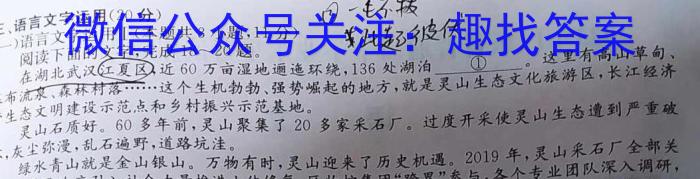 三、语言文字运用(20分)
微信公众号关注：趣找答案
阅读下面的
在湖北武汉江夏区,近60万亩湿地逦迤环绕,136处湖泊 ① 。这里有高山草甸、
布流泉、森林村落……这个生机勃勃、强势崛起的地方,就是灵山生态文化旅游区,长江经济
生态文明建设示范点和乡村振兴示范基地。
灵山石质好。60多年前,灵山聚集了20多家采石厂。过度开采使灵山生态遭到严重破
,灰尘弥漫,乱石遍野,道路坑洼。
绿水青山就是金山银山。万物有时,灵山迎来了历史机遇。2019年,灵山采石厂全部关
参与,各个专业团队深入调研,